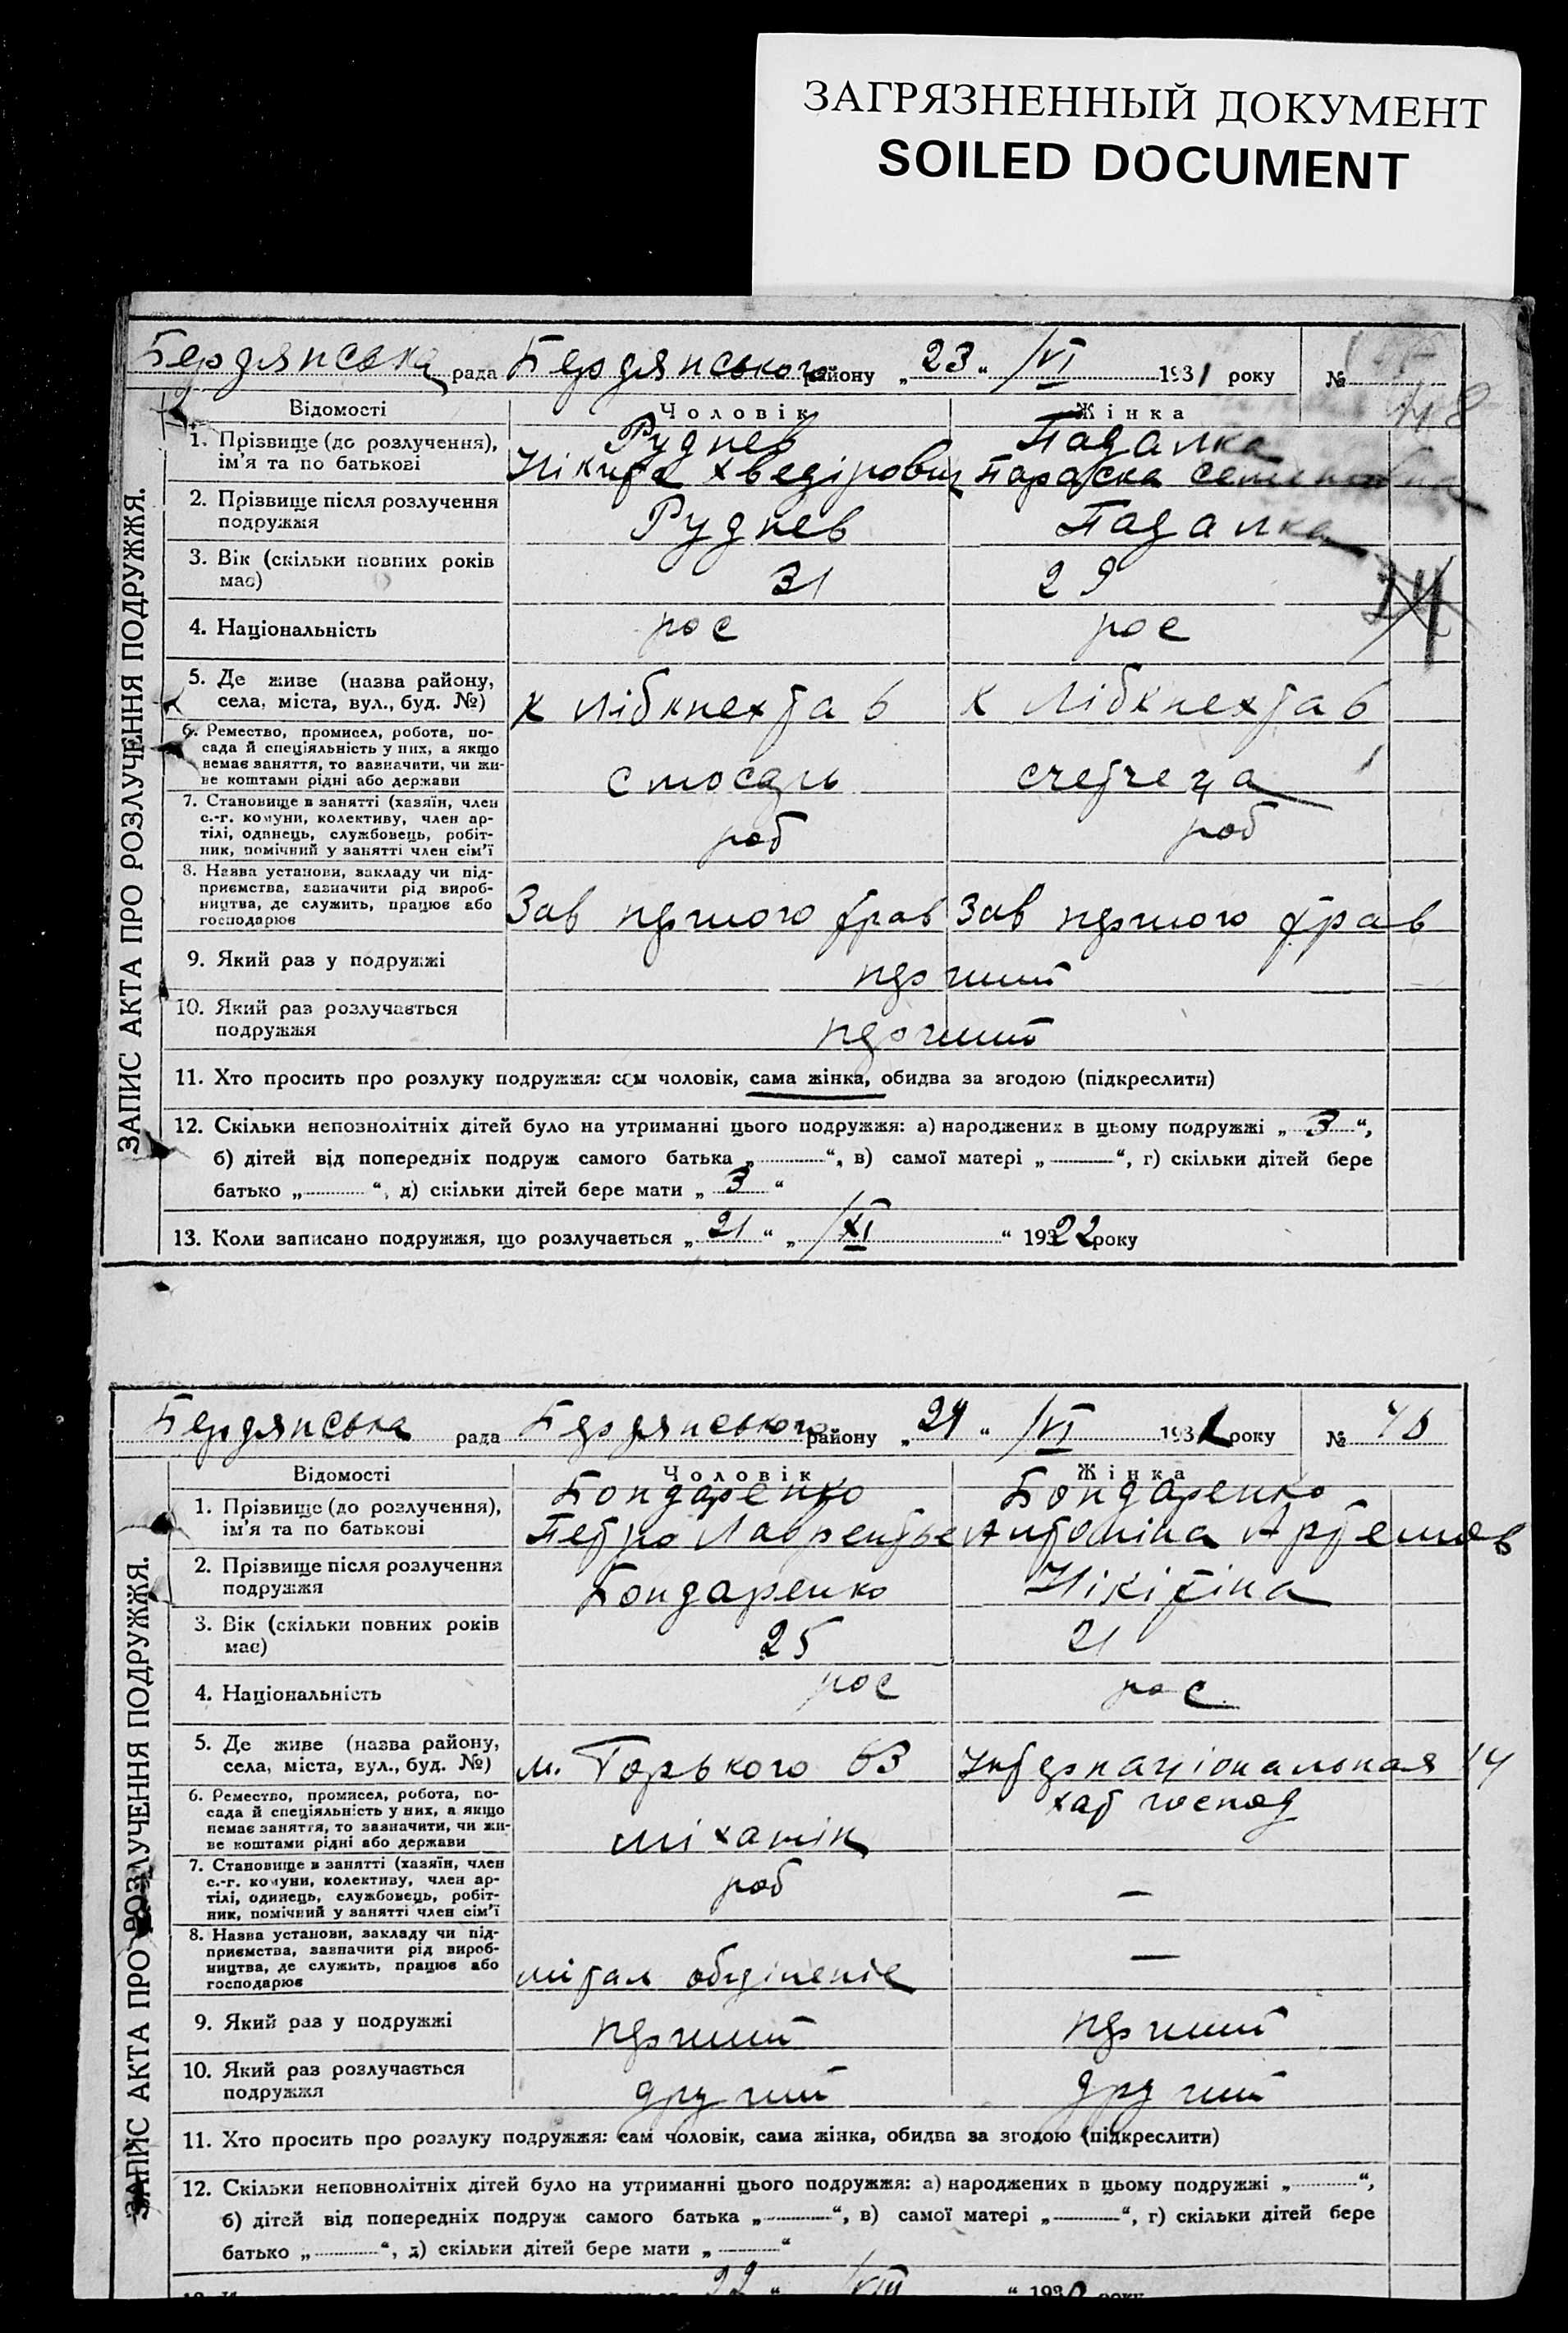 ЗАГРЯЗНЕННЫЙ ДОКУМЕНТ
SOILED DOCUMENT
ЗАПИС АКТА ПРО РОЗЛУЧЕННЯ ПОДРУЖЖЯ.
Бердянська рада Бердянського району „23“ /VI 1931 року №
Відомості Чоловік Жінка
1. Прізвище (до розлучення), Руднев Падалка
ім'я та по батькові Нікита Хведірович Параска
2. Прізвище після розлучення
подружжя Руднев Падалка
3. Вік (скільки повних років
має) 31 29
4. Національність рос рос
5. Де живе (назва району,
села, міста, вул., буд. №) К Лібкнехта 6 К Лібкнехта 6
6. Ремество, промисел, робота, по-
сада й спеціяльність у них, а якщо
немає заняття, то зазначити, чи жи-
ве коштами рідні або держави слюсарь
7. Становище в занятті (хазяїн, член
с.-г. комуни, колективу, член ар-
тілі, одинець, службовець, робіт-
ник, помічний у занятті член сім'ї роб роб
8. Назва установи, закладу чи під-
приємства, зазначити рід вироб-
ництва, де служить, працює або
господарює Зав першого трав Зав першого трав
9. Який раз у подружжі перший
10. Який раз розлучається
подружжя перший
11. Хто просить про розлуку подружжя: сам чоловік, сама жінка, обидва за згодою (підкреслити)
12. Скільки неповнолітніх дітей було на утриманні цього подружжя: а) народжених в цьому подружжі „3“,
б) дітей від попередніх подруж самого батька „ “, в) самої матері „ “, г) скільки дітей бере
батько „ “, д) скільки дітей бере мати „3“
13. Коли записано подружжя, що розлучається „21“ „/XI “ 19322 року
ЗАПИС АКТА ПРО РОЗЛУЧЕННЯ ПОДРУЖЖЯ.
Бердянська рада Бердянського району „24“ /VI 1931 року №
Відомості Чоловік Жінка
1. Прізвище (до розлучення), Бондаренко Бондаренко
ім'я та по батькові Петро Лаврентьє Антоніна Артемов
2. Прізвище після розлучення
подружжя Бондаренко Нікітіна
3. Вік (скільки повних років
має) 25 21
4. Національність рос рос
5. Де живе (назва району,
села, міста, вул., буд. №) м. Горького 63 Интернаціональная 14
6. Ремество, промисел, робота, по- хат господ
сада й спеціяльність у них, а якщо
немає заняття, то зазначити, чи жи-
ве коштами рідні або держави міханік
7. Становище в занятті (хазяїн, член
с.-г. комуни, колективу, член ар-
тілі, одинець, службовець, робіт-
ник, помічний у занятті член сім'ї роб —
8. Назва установи, закладу чи під-
приємства, зазначити рід вироб-
ництва, де служить, працює або
господарює мітал —
9. Який раз у подружжі перший перший
10. Який раз розлучається
подружжя другий другий
11. Хто просить про розлуку подружжя: сам чоловік, сама жінка, обидва за згодою (підкреслити)
12. Скільки неповнолітніх дітей було на утриманні цього подружжя: а) народжених в цьому подружжі „ “,
б) дітей від попередніх подруж самого батька „ “, в) самої матері „ “, г) скільки дітей бере
батько „ “, д) скільки дітей бере мати „ “
22 “ /VIII “ 1930 року